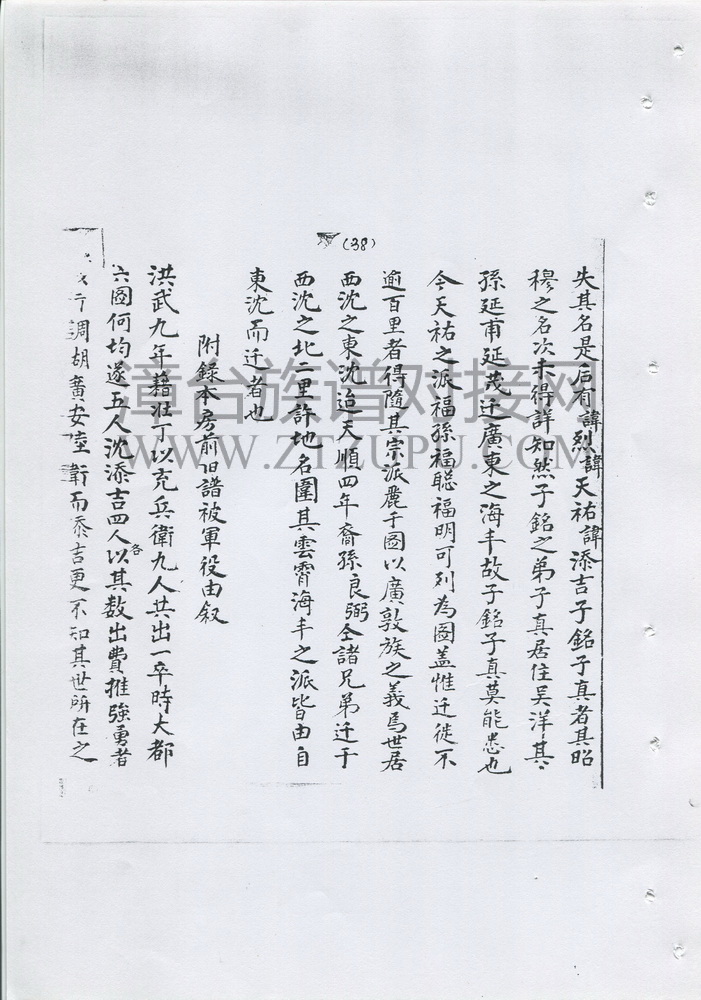 (38)
失其名是后有諱烈諱天祐諱添吉子銘子真者其昭
穆之名次未得詳知然子銘之弟子真居住吴洋其
孫延甫延茂迁廣東之海丰故子銘子真莫能悉也
今天祐之派福孫福聪福明可列為圖盖惟迁徙不
逾百里者得隨其宗派麗于圖以廣敦族之義焉世居
西沈之東沈迨天順四年裔孫良弼仝諸兄弟迁于
西沈之北二里許地名圍其雲霄海丰之派皆由自
東沈而迁者也
附錄本房前旧譜被軍役由叙
洪武九年藉壯丁以充兵衛九人共出一卒時大都
六圖何均遂五人沈添吉四人各以其数出費推強勇者
調胡廣安陸衛而添吉更不知其世所在之
漳台族谱对接网
WWW.ZTZUPU.COM